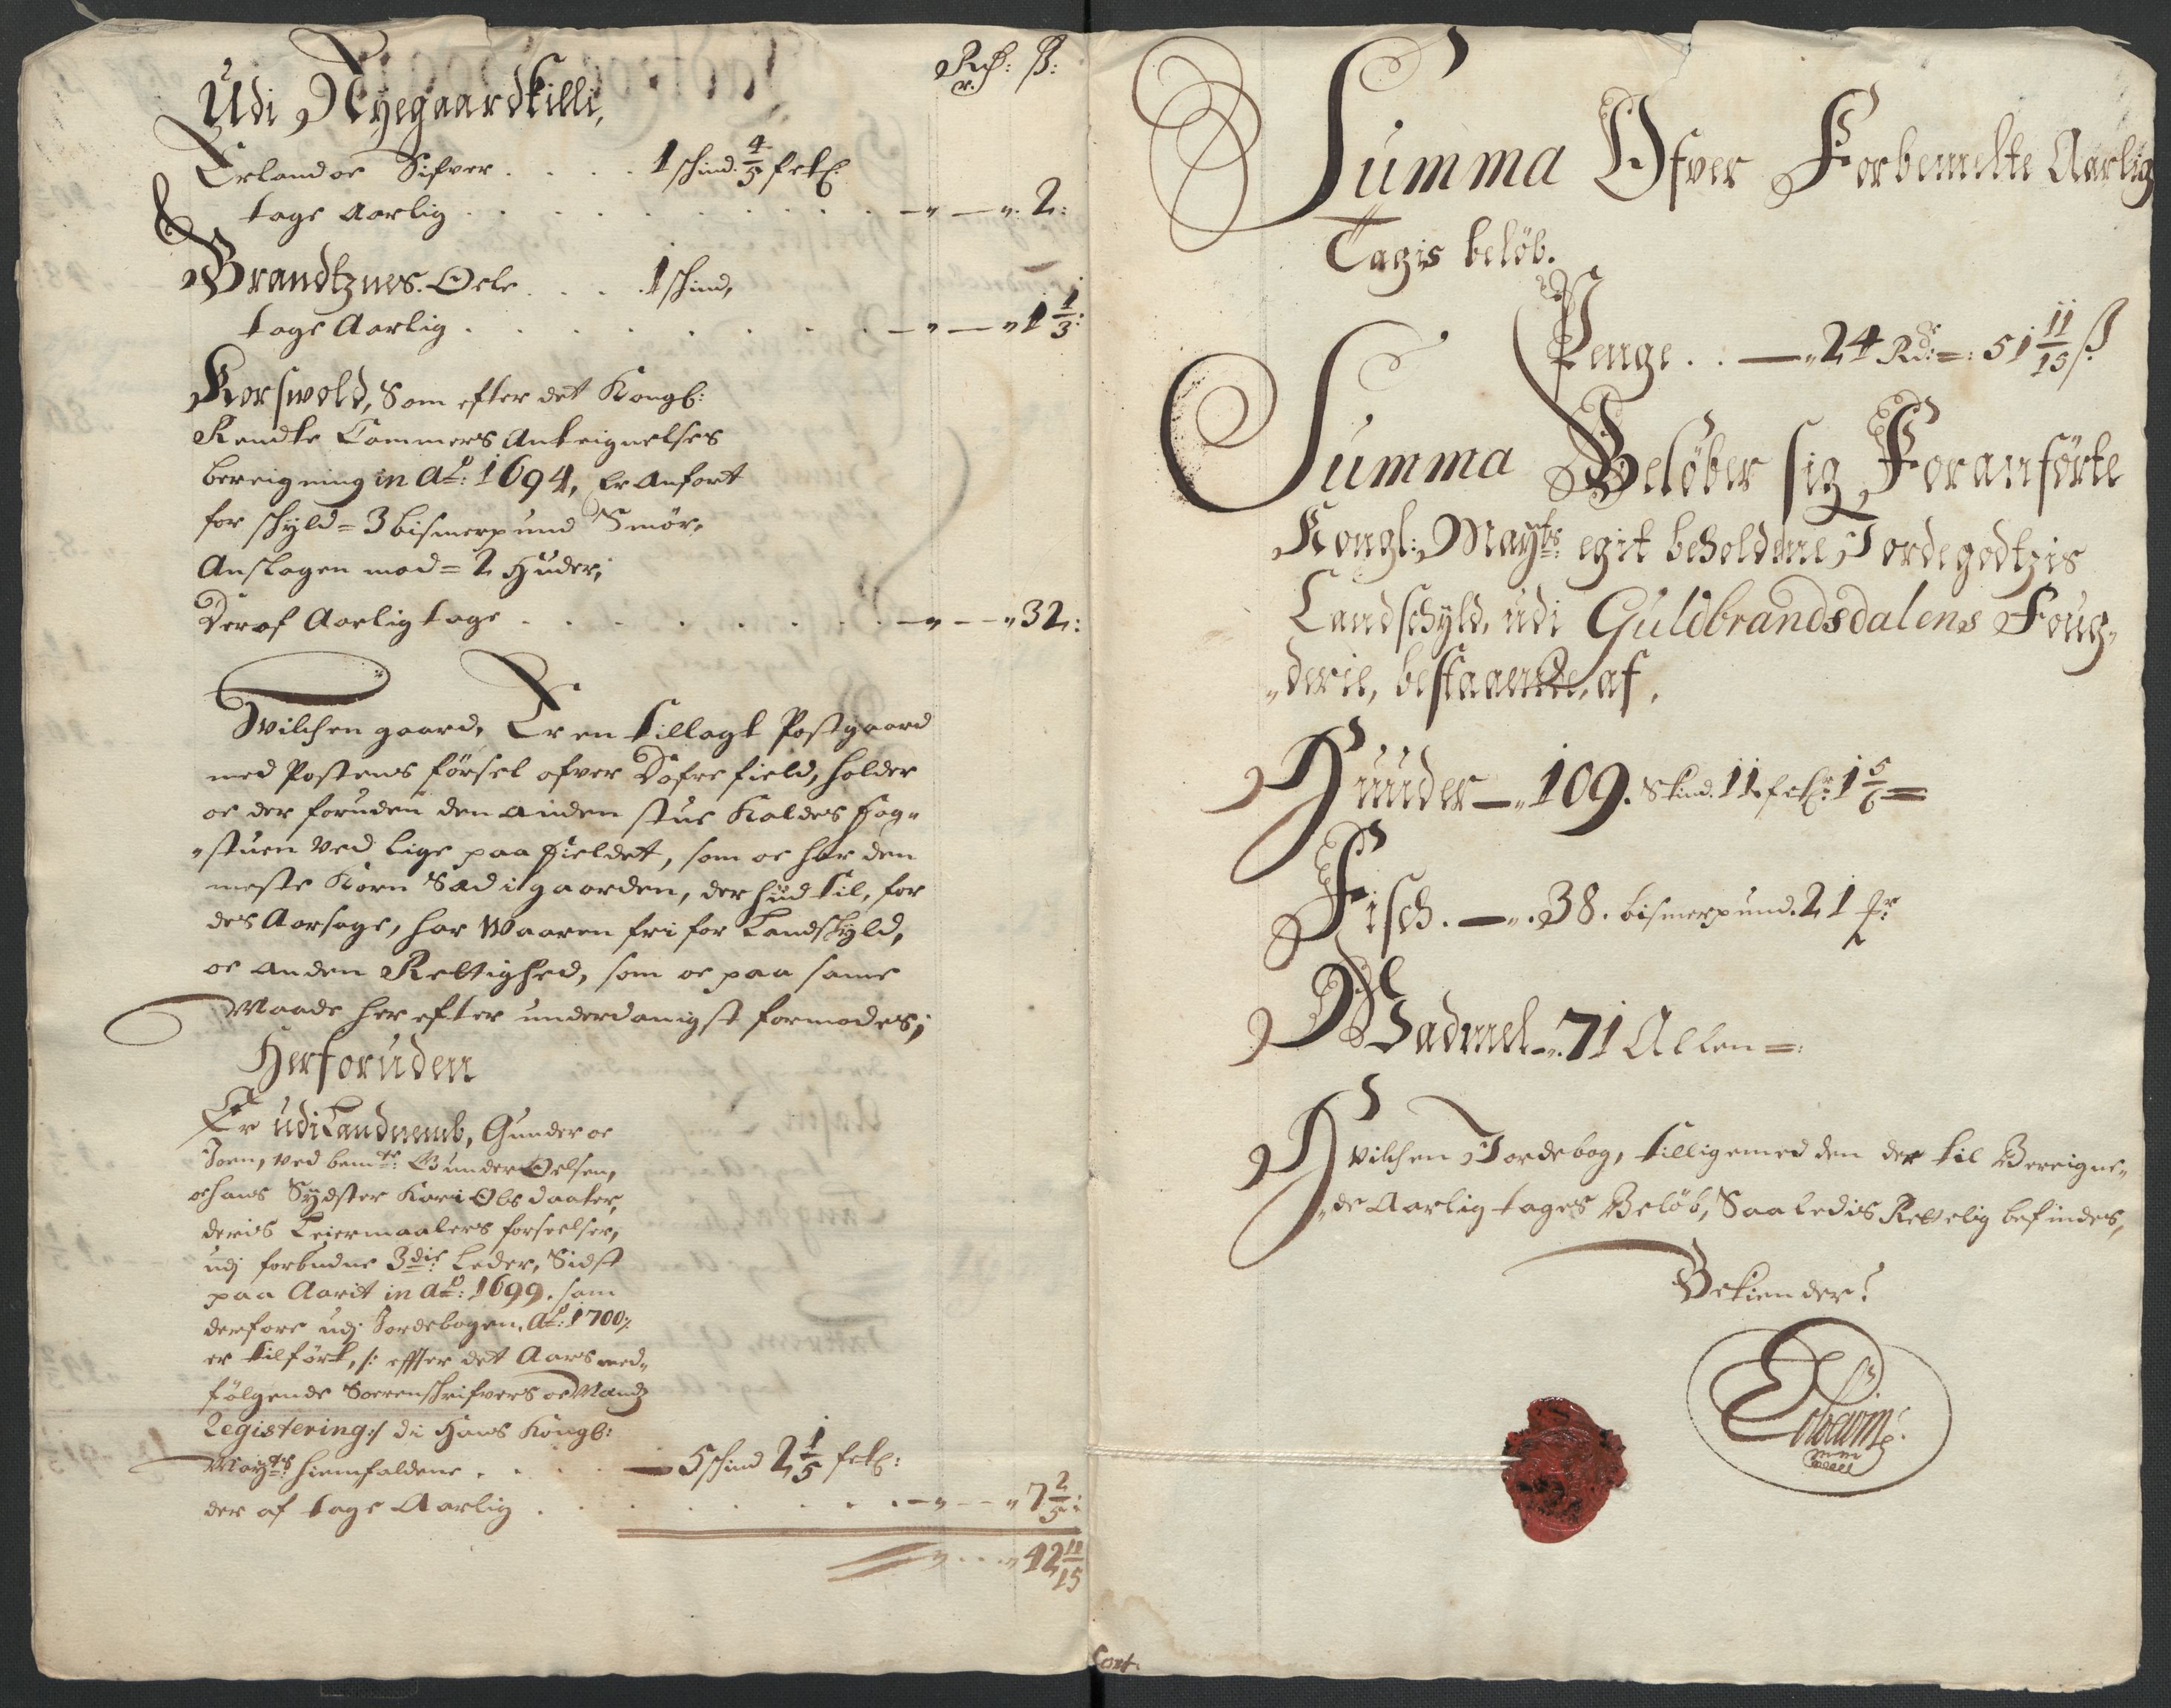 Rdr: ß:
Udi Nyegaardkilli,
Erland oc Sifver . . . . 1 schind 4/5 sckl:
tage Aarlig . . . 2:
Brandtznes. Oele . . . . 1 schind,
tage Aarlig . . . 1 1/3:
Korswold, Som efter det Kongl:
Rendte Cammers Anteignelses
bereigning in Ao: 1694, Er Anfört
for schyld = 3 bismerpund Smör,
Anslagen mod = 2 Huder,
Deraf Aarlig tage . . . 32:
Hvilchen gaard, Er en tillagt Postgaard
med Postens försel ofver Dofre field, holder
oc der foruden den anden stue Kaldes Fog-
stuen ved lige paa Fieldet, som oc har den
meste Korn Sæd i gaarden, der hid til, for
des Aarsage, har Waaren fri for Landskyld,
oc anden Rettighed, som oc paa same
Maade her efter underdanigst formodes;
Herforuden
Er udi Landnemb, Gunder oc
Joen, ved bemte: Gunder Oelsen,
oc hans Sydster Kari Olsdaater,
deris Leiermaalers forseelser,
udj forbudne 3die: Leder, Sidst
paa Aarit in Ao: 1699. som
derfore udj Jordebogen, Ao: 1700
er tilfört, /: effter det Aars med-
fölgende Soerenschrifvers oc Mandz
Registering :/ di Hans Kongl:
Mayts: hiemfaldene . . . 5 schind 2 1/5 sckl:
der af tage Aarlig . . . 7 2/5:
42 11/15
Summa Ofver Forbemelte Aarlig
Tagis belöb.
Penge . . — 24 Rd: = 51 11/15 ß
Summa Belöber sig Foranförte
Kongl: Mayts: egit beholdene Jordegodtzis
Landschyld, udi Guldbrandsdalens Foug-
derie, bestaaende, af,
Huuder — 109. Skind. 11. sckl: 1 5/6 =
Fisch. — 38. bismerpund. 21
Wadmel — 71 Allen =:
Hvilchen Jordebog, tilligemed den der til Bereigne-
de Aarlig tages Belöb, Saaledis Rettelig befindes,
Bekiender!
Cont.